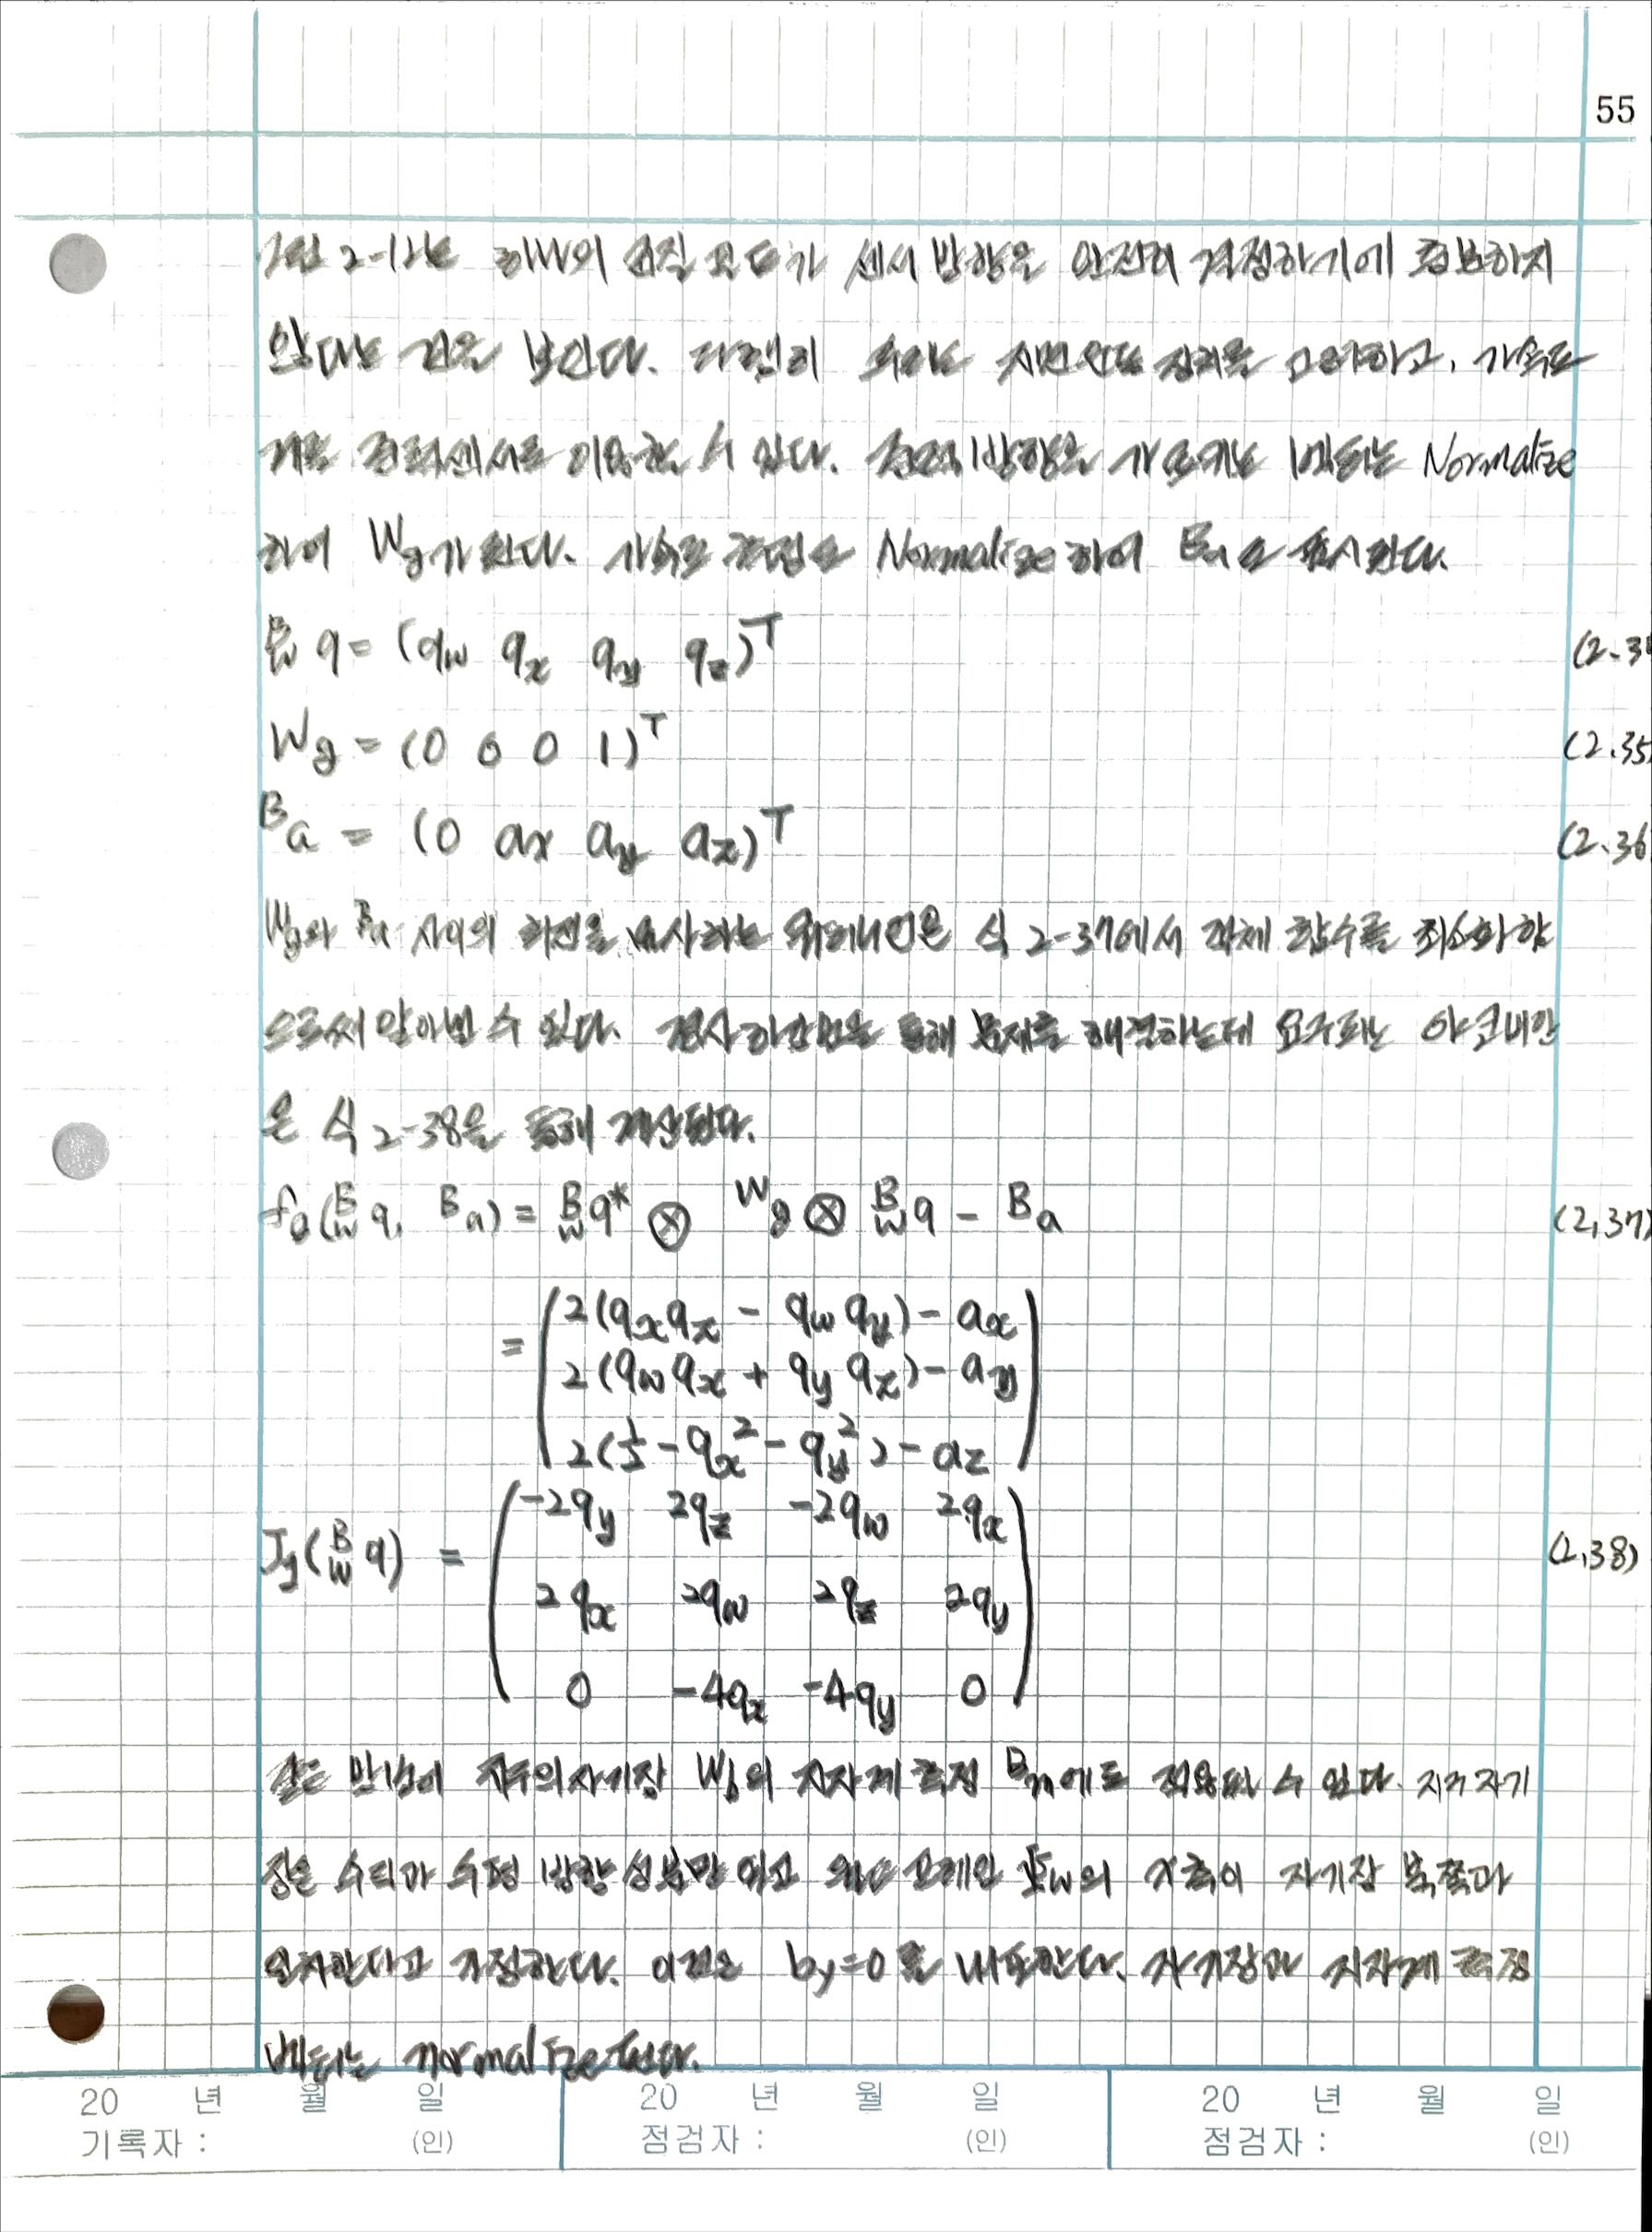 55
2-12는 하나의 센서 방향을 완전히 결정하기에 충분하지
않다는 것을 보인다. 다행히 우리는 고려하고, 가속도
계를 이용할 수 있다. 방향을 가르키는 벡터는 Normalize
하여 Wg가 된다. 가속도 측정은 Normalize 하여 Ba로 표시한다.
B/W q = (qw qx qy qz)^T (2.34
Wg = (0 0 0 1)^T (2.35)
Ba = (0 ax ay az)^T (2.36
Wg와 Ba 사이의 회전을 묘사하는 쿼터니언은 식 2-37에서 객체 함수를 최소화 함
으로써 알아낼 수 있다. 경사하강법을 통해 문제를 해결하는데 요구되는 야코비안
은 식 2-38을 통해 계산된다.
fg(B/W q, Ba) = B/W q* ⊗ Wg ⊗ B/W q - Ba (2,37)
= ( 2(qxqz - qwqy) - ax
2(qwqx + qyqz) - ay
2(1/2 - qx^2 - qy^2) - az )
Jg(B/W q) = ( -2qy 2qz -2qw 2qx (2,38)
2qx 2qw 2qz 2qy
0 -4qx -4qy 0 )
같은 방법이 지구의 자기장 Wb의 지자계 측정 Bm에도 적용될 수 있다. 지구 자기
장은 수직과 수평 방향 성분만 있고 프레임 의 X축이 자기장 북쪽과
일치한다고 가정한다. 이것은 by=0을 내포한다. 자기장과 지자계 측정
벡터는 normalize된다.
20 년 월 일 20 년 월 일 20 년 월 일
기록자 : (인) 점검자 : (인) 점검자 : (인)